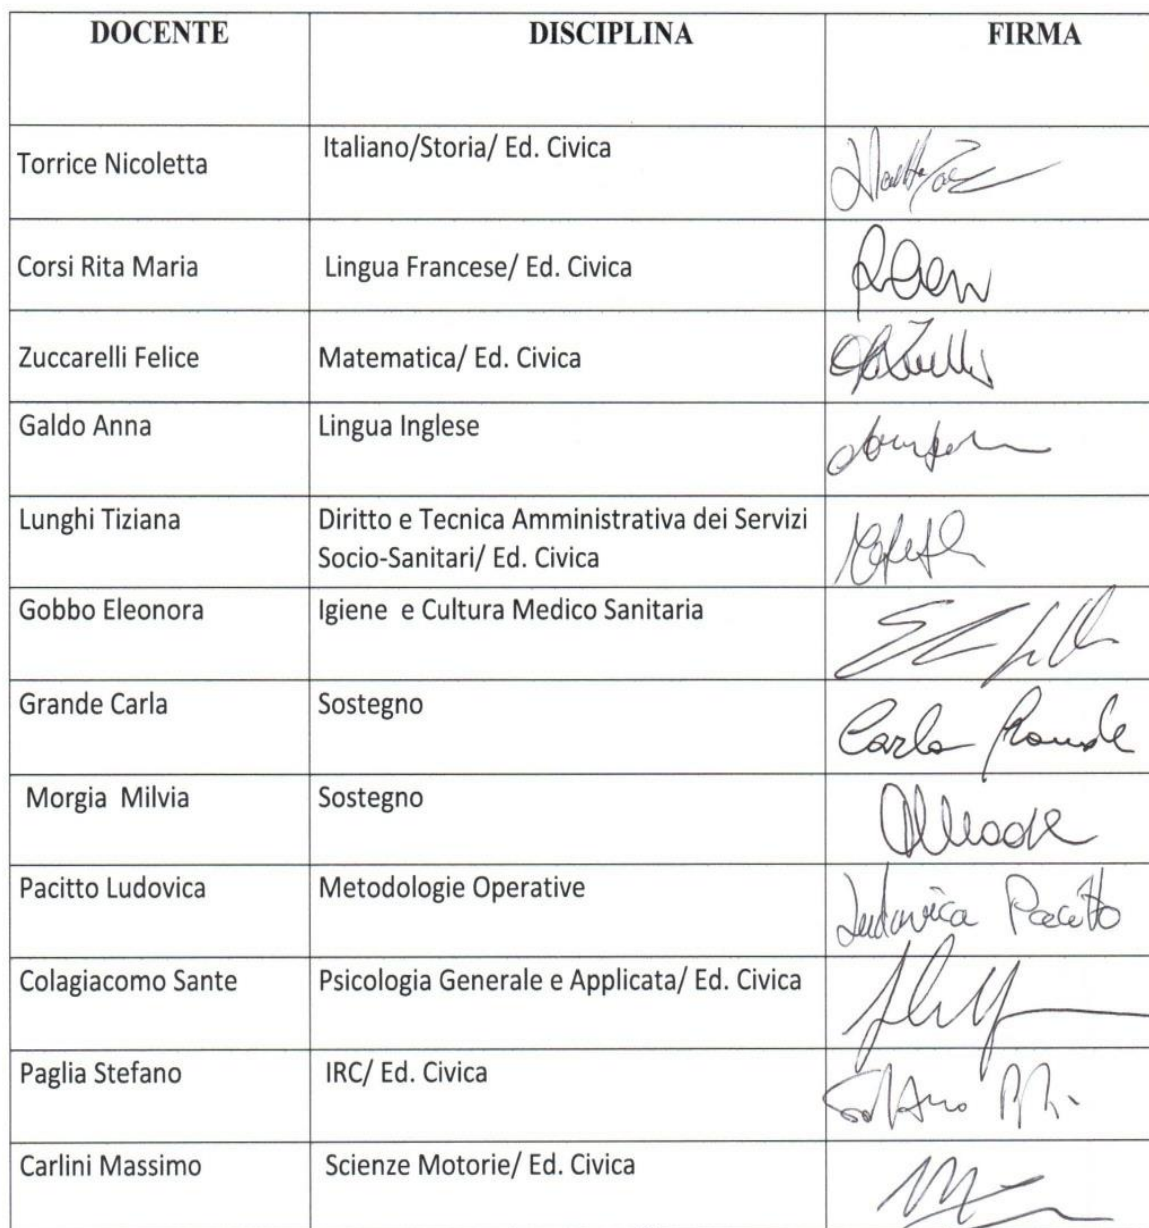 DOCENTE DISCIPLINA FIRMA
Torrice Nicoletta Italiano/Storia/ Ed. Civica
Corsi Rita Maria Lingua Francese/ Ed. Civica
Zuccarelli Felice Matematica/ Ed. Civica
Galdo Anna Lingua Inglese
Lunghi Tiziana Diritto e Tecnica Amministrativa dei Servizi
Socio-Sanitari/ Ed. Civica
Gobbo Eleonora Igiene e Cultura Medico Sanitaria
Grande Carla Sostegno Carla Grande
Morgia Milvia Sostegno
Pacitto Ludovica Metodologie Operative Ludovica Pacitto
Colagiacomo Sante Psicologia Generale e Applicata/ Ed. Civica
Paglia Stefano IRC/ Ed. Civica
Carlini Massimo Scienze Motorie/ Ed. Civica